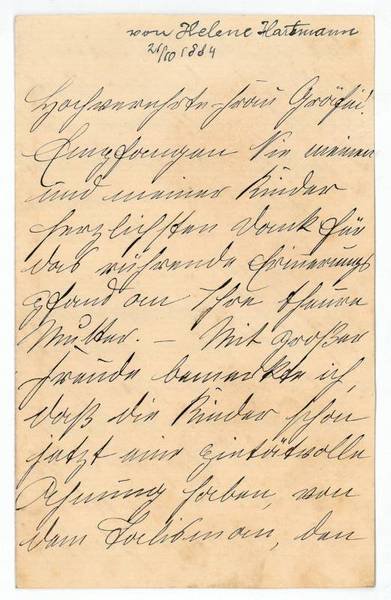 von Helene Hartmann
21/10 1884
Hochverehrte Frau Gräfin!
Empfangen Sie meinen
und meiner Kinder
herzlichsten Dank für
das rührende Erinerungs
pfand an Ihre theure
Mutter. – Mit großer
Freude bemerkte ich,
daß die Kinder schon
jetzt eine pietätvolle
Ahnung haben, von
dem Talisman, den